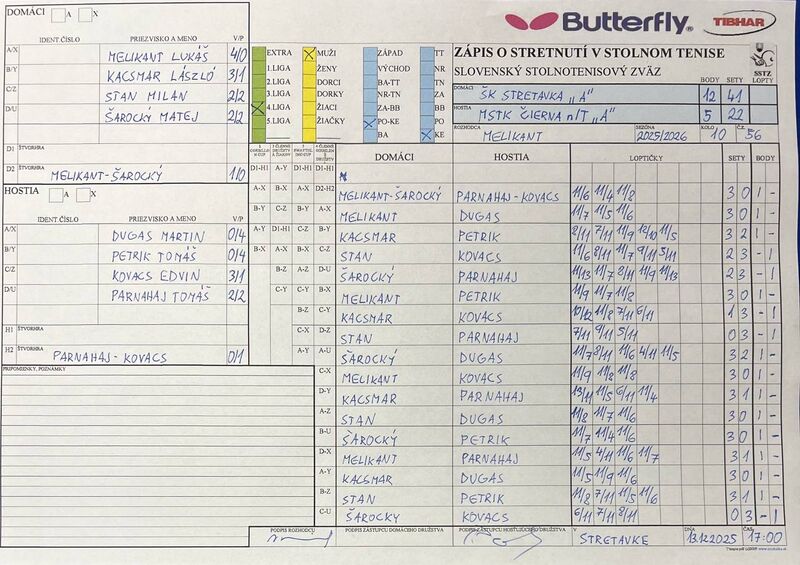 DOMÁCI A X
IDENT.ČÍSLO PRIEZVISKO A MENO V/P
A/X MELIKANT LUKÁŠ 4/0
B/Y KACSMAR LÁSZLÓ 3/1
C/Z STAN MILAN 2/2
D/U ŠAROCKÝ MATEJ 2/2
D1 ŠTVORHRA
D2 ŠTVORHRA MELIKANT-ŠAROCKÝ 1/0
HOSTIA A X
IDENT.ČÍSLO PRIEZVISKO A MENO V/P
A/X DUGAS MARTIN 0/4
B/Y PETRIK TOMÁŠ 0/4
C/Z KOVACS EDVIN 3/1
D/U PARNAHAJ TOMÁŠ 2/2
H1 ŠTVORHRA
H2 ŠTVORHRA PARNAHAJ-KOVACS 0/1
PRIPOMIENKY, POZNÁMKY
Butterfly TIBHAR
EXTRA MUŽI ZÁPAD TT
1.LIGA ŽENY VÝCHOD NR
2.LIGA DORCI BA-TT TN
3.LIGA DORKY NR-TN ZA
4.LIGA ŽIACI ZA-BB BB
5.LIGA ŽIAČKY PO-KE PO
BA KE
ZÁPIS O STRETNUTÍ V STOLNOM TENISE
SLOVENSKÝ STOLNOTENISOVÝ ZVÄZ
SSTZ
BODY SETY LOPTY
DOMÁCI ŠK STRETAVKA „A" 12 41
HOSTIA MSTK ČIERNA n/T „A" 5 22
ROZHODCA MELIKANT SEZÓNA 2025/2026 KOLO 10 Č.Z. 56
DOMÁCI HOSTIA LOPTIČKY SETY BODY
D1-H1 A-Y D1-H1
A-X B-X D2-H2 MELIKANT-ŠAROCKÝ PARNAHAJ-KOVACS 11/6 11/4 11/8 3 0 1 -
B-Y C-Z A-X MELIKANT DUGAS 11/7 11/5 11/6 3 0 1 -
A-Y D1-H1 B-Y KACSMAR PETRIK 8/11 7/11 11/9 12/10 11/5 3 2 1 -
B-X A-X C-Z STAN KOVACS 11/6 8/11 11/7 9/11 5/11 2 3 - 1
B-Z D-U ŠAROCKÝ PARNAHAJ 11/13 11/7 8/11 11/9 11/13 2 3 - 1
C-Y B-X MELIKANT PETRIK 11/9 11/7 11/8 3 0 1 -
B-Z C-Y KACSMAR KOVACS 10/12 11/8 7/11 6/11 1 3 - 1
C-X D-Z STAN PARNAHAJ 7/11 9/11 5/11 0 3 - 1
A-Y A-U ŠAROCKÝ DUGAS 11/7 8/11 11/6 4/11 11/5 3 2 1 -
C-X MELIKANT KOVACS 11/9 11/8 11/8 3 0 1 -
D-Y KACSMAR PARNAHAJ 13/11 11/5 6/11 11/4 3 1 1 -
A-Z STAN DUGAS 11/8 11/7 11/6 3 0 1 -
B-U ŠAROCKÝ PETRIK 11/7 11/4 11/6 3 0 1 -
D-X MELIKANT PARNAHAJ 11/5 4/11 11/6 11/7 3 1 1 -
A-Y KACSMAR DUGAS 11/5 11/9 11/6 3 0 1 -
B-Z STAN PETRIK 11/8 7/11 11/5 11/6 3 1 1 -
C-U ŠAROCKÝ KOVACS 6/11 7/11 8/11 0 3 - 1
PODPIS ROZHODCU PODPIS ZÁSTUPCU DOMÁCEHO DRUŽSTVA PODPIS ZÁSTUPCU HOSŤUJÚCEHO DRUŽSTVA V STRETAVKE DŇA 13.12.2025 ČAS 17:00